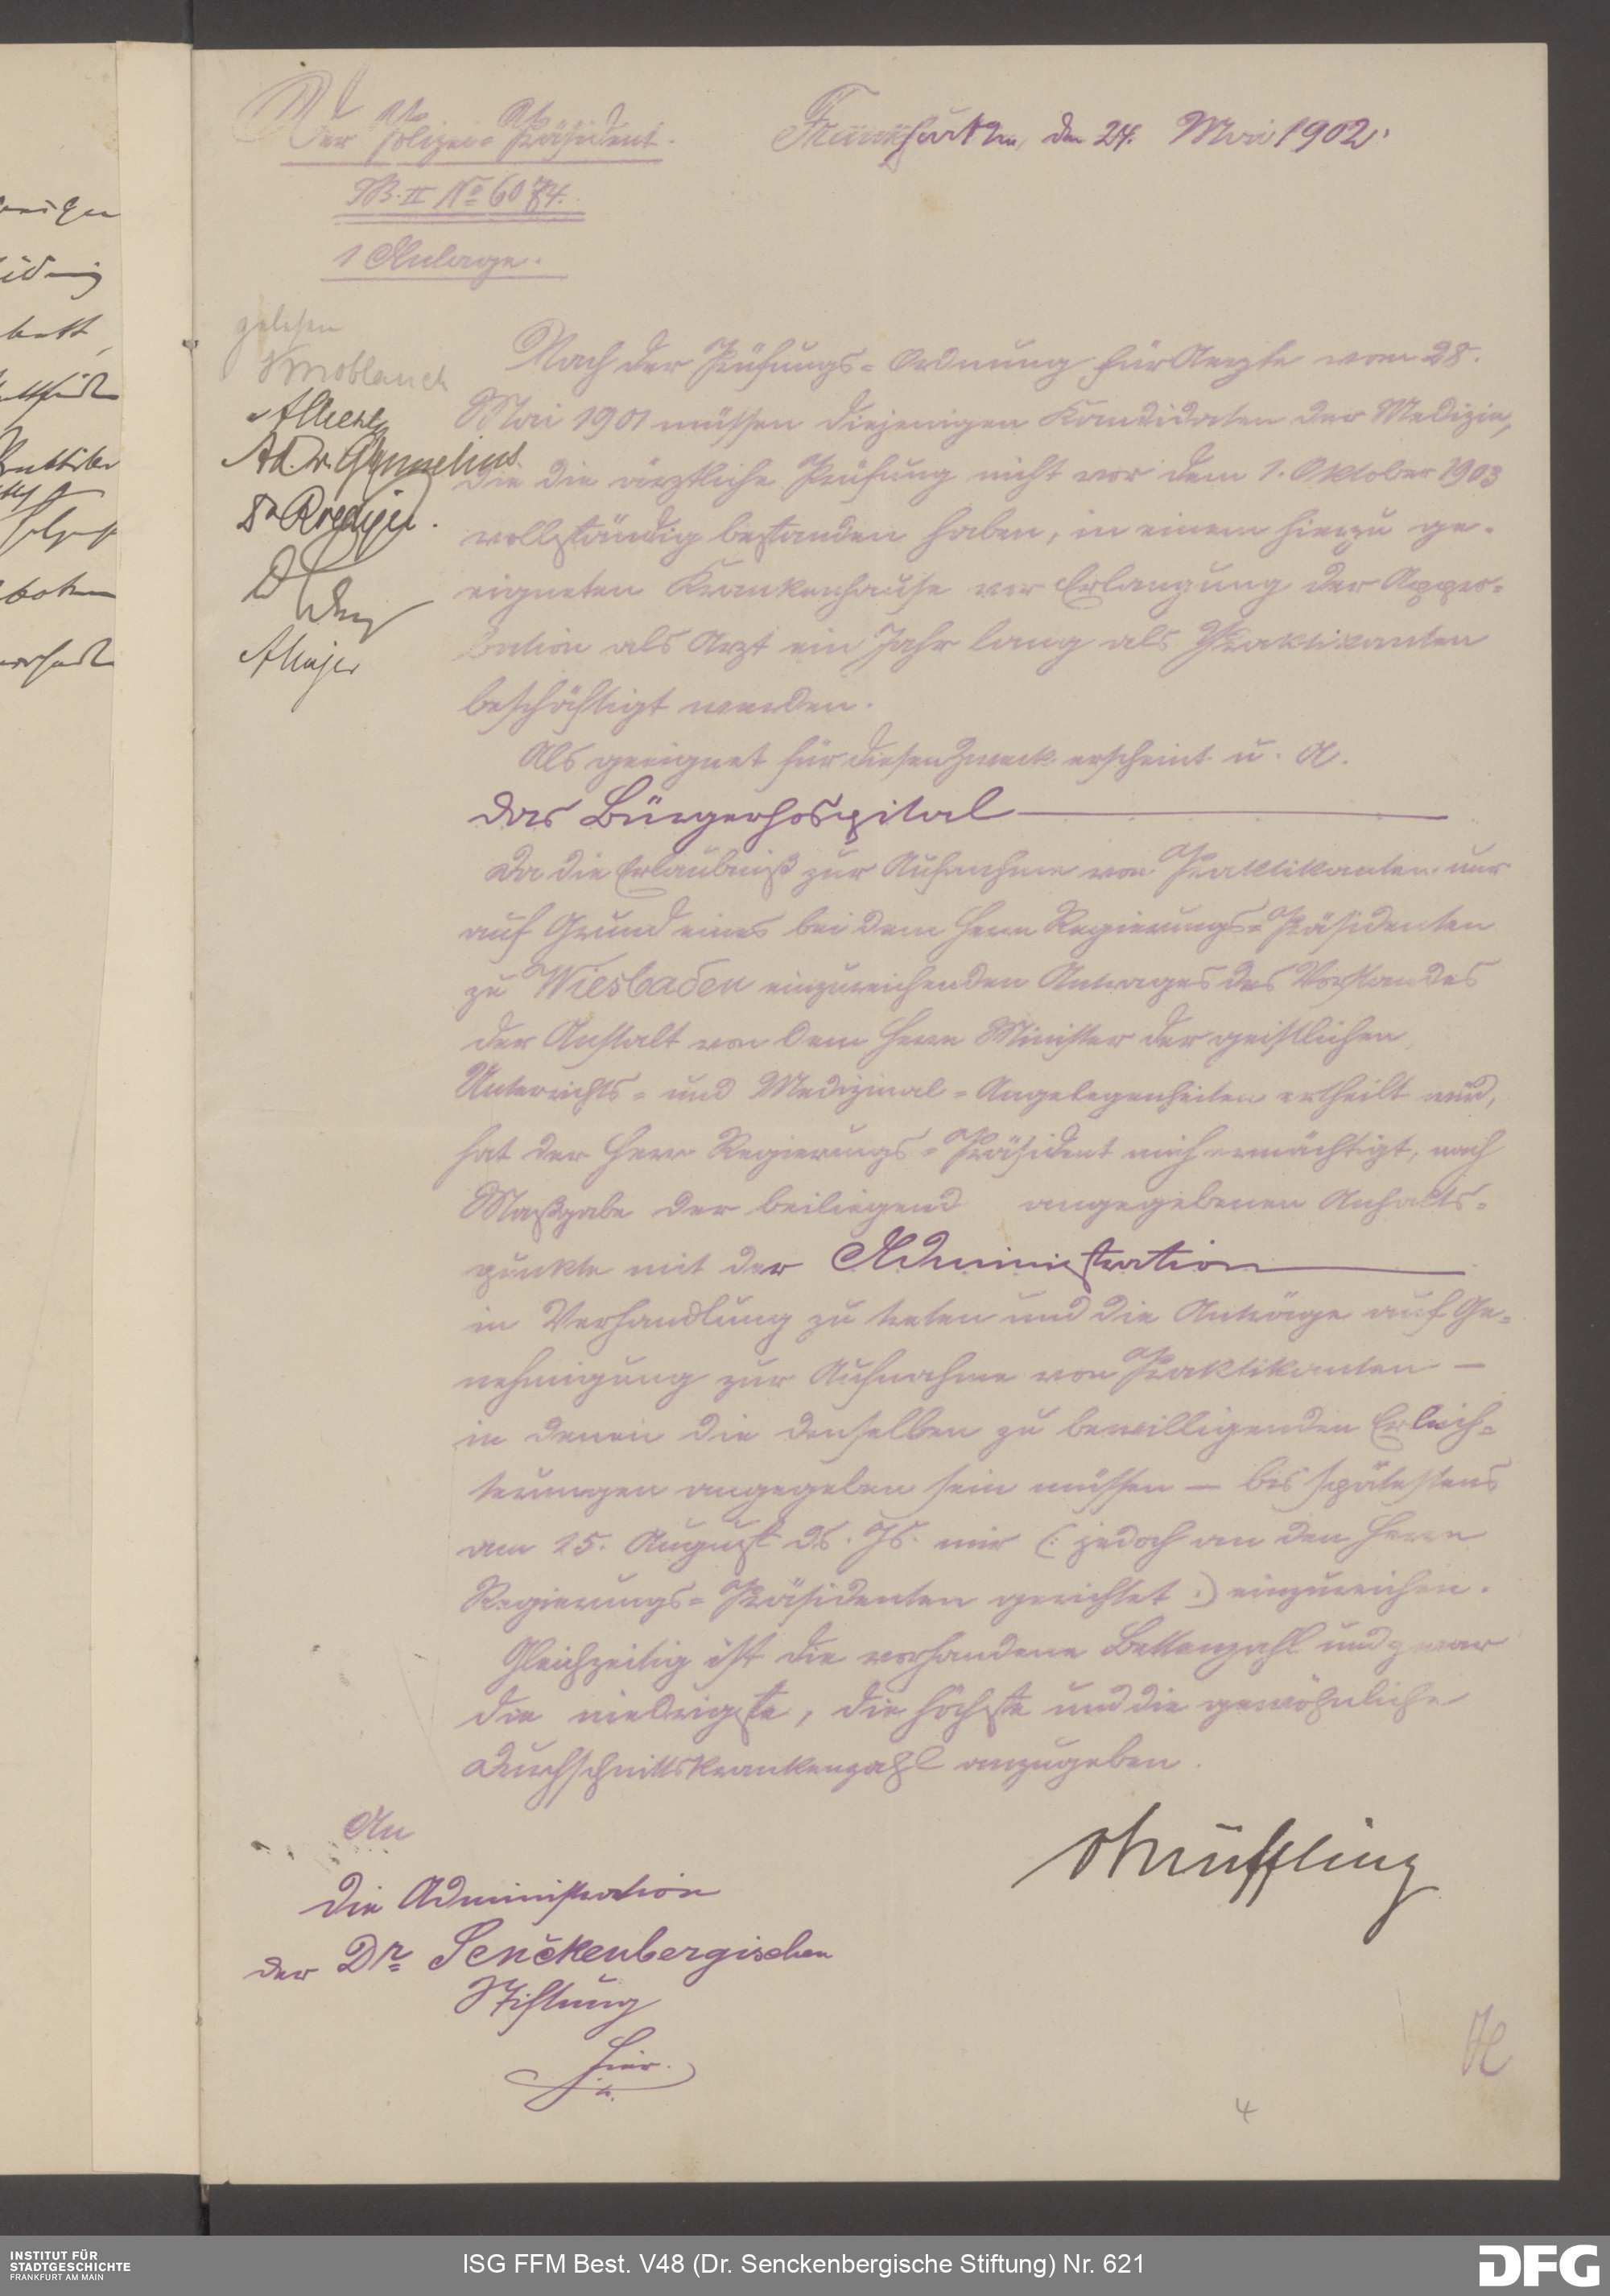 Der Polizei-Präsident.
Frankfurt a/M., den 24. Mai 1902.
JB. II No 6074.
1 Anlage.
gelesen
Knoblauch
Nach der Prüfungs-Ordnung für Aerzte vom 28.
Mai 1901 müssen diejenigen Kandidaten der Medizin,
die die ärztliche Prüfung nicht vor dem 1. Oktober 1903
vollständig bestanden haben, in einem hierzu ge-
eigneten Krankenhause vor Erlangung der Appro-
bation als Arzt ein Jahr lang als Praktikanten
beschäftigt werden.
Als geeignet für diesen Zweck erscheint u. A.
das Bürgerhospital
Da die Erlaubniß zur Aufnahme von Praktikanten nur
auf Grund eines bei dem Herrn Regierungs-Präsidenten
zu Wiesbaden einzureichenden Antrages des Vorstandes
der Anstalt von dem Herrn Minister der geistlichen,
Unterrichts- und Medizinal-Angelegenheiten ertheilt wird,
hat der Herr Regierungs-Präsident mich ermächtigt, nach
Maßgabe der beiliegend angegebenen Anhalts-
punkte mit der Administration
in Verhandlung zu treten und die Anträge auf Ge-
nehmigung zur Aufnahme von Praktikanten —
in denen die denselben zu bewilligenden Erleich-
terungen angegeben sein müssen — bis spätestens
am 25. August ds. Js. mir (: jedoch an den Herrn
Regierungs-Präsidenten gerichtet :) einzureichen.
Gleichzeitig ist die vorhandene Bettenzahl und zwar
die niedrigste, die höchste und die gewöhnliche
Durchschnittskrankenzahl anzugeben.
An
die Administration
der Dr. Senckenbergischen
Stiftung
hier.
Müffling
4
INSTITUT FÜR
STADTGESCHICHTE
FRANKFURT AM MAIN
ISG FFM Best. V48 (Dr. Senckenbergische Stiftung) Nr. 621
DFG